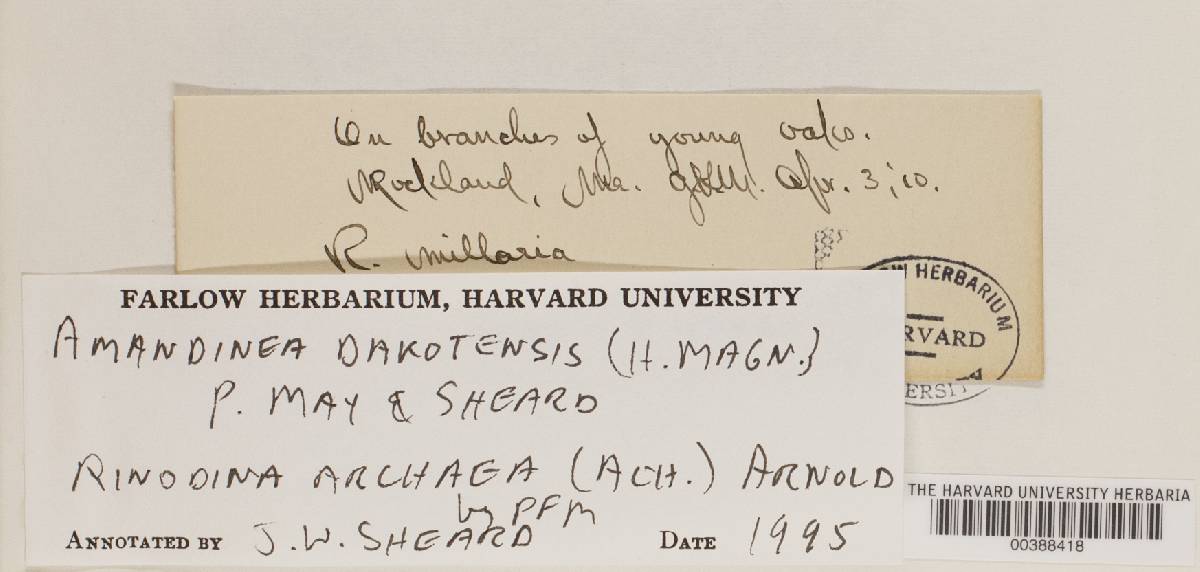 On branches of young oaks.
Rockland, Me. G.K.M. Apr. 3, '10.
R. millaria
FARLOW HERBARIUM
HARVARD
FARLOW HERBARIUM, HARVARD UNIVERSITY
AMANDINEA DAKOTENSIS (H. MAGN.)
P. MAY & SHEARD
RINODINA ARCHAEA (ACH.) ARNOLD
by PFM
ANNOTATED BY J.W. SHEARD DATE 1995
THE HARVARD UNIVERSITY HERBARIA
00388418